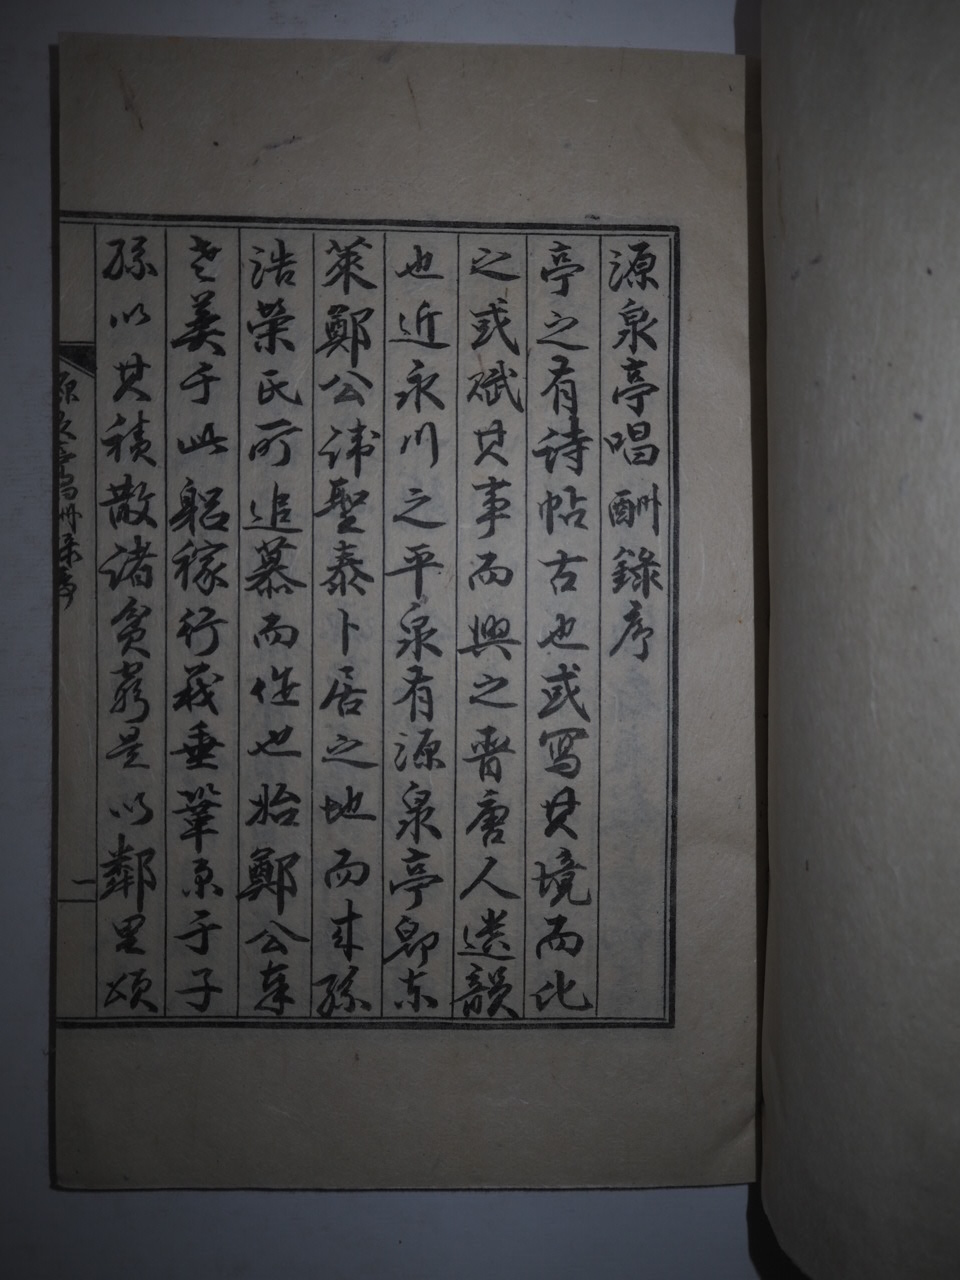 源泉亭唱酬錄序
亭之有詩帖古也或寫其境而比
之或賦其事而興之晋唐人遺韻
也近永川之平泉有源泉亭卽東
萊鄭公諱聖泰卜居之地而肖孫
浩榮氏所追慕而作也始鄭公奉
老養于此躬稼行義垂肇京于子
孫以其積散諸貧窮是以鄰里頌
源泉亭唱酬錄序
一